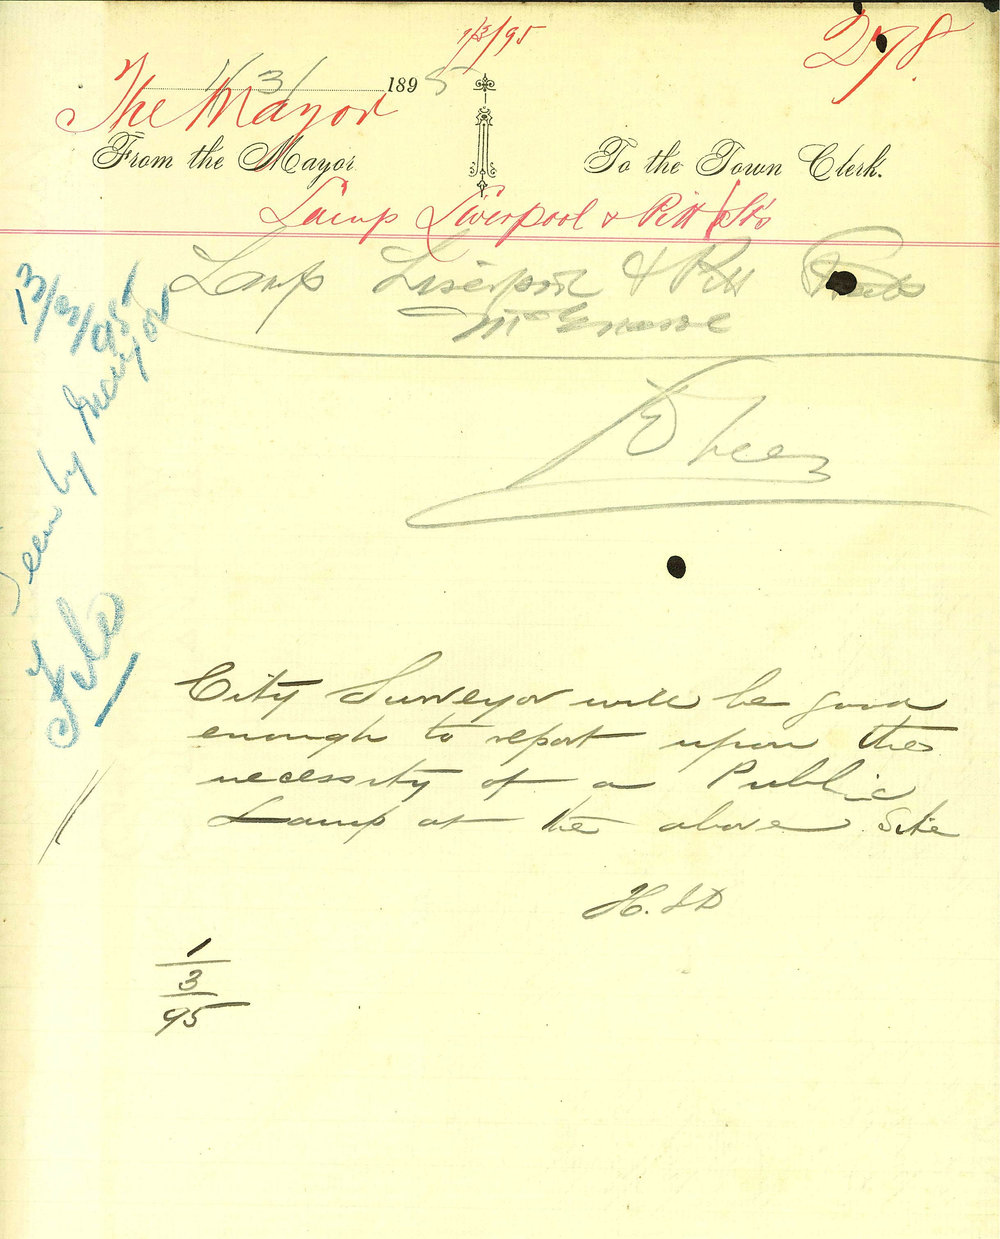 1/3/95
278.
1/3/ 1895
The Mayor
From the Mayor To the Town Clerk.
Lamp Liverpool & Pitt Sts
Lamp Liverpool & Pitt
13/03/95
Seen by Mayor
File
City Surveyor will be good
enough to report upon the
necessity of a Public
Lamp at the above Site
1
3
95